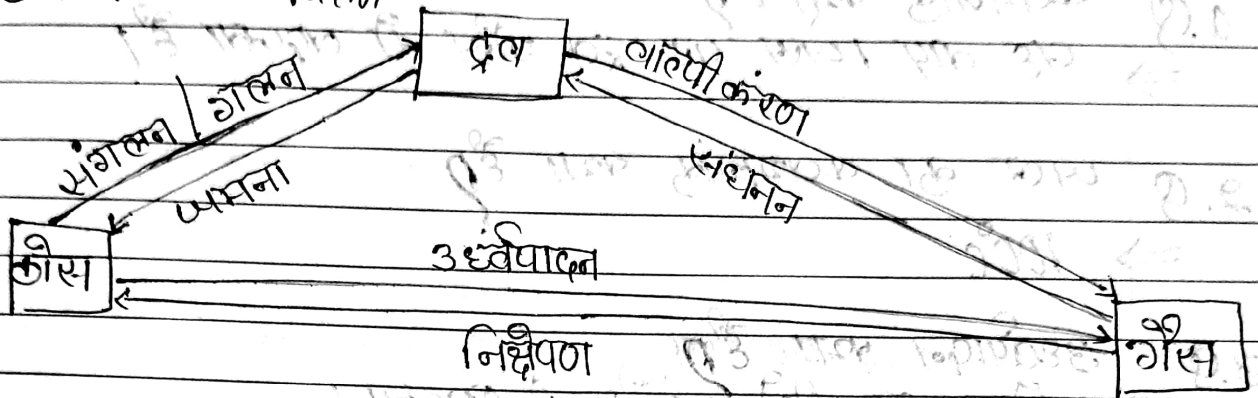 द्रव
संगलन / गलन
वाष्पीकरण
जमना
संघनन
ठोस
उर्ध्वपादन
निक्षेपण
गैस